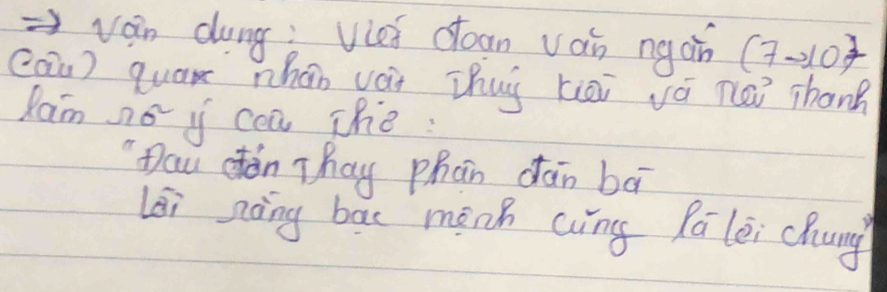 => Vận dụng: Viết đoạn văn ngắn (7->10
câu) qua nhân vật Thuý Kiều và Tiểu Thanh
làm rõ ý câu thơ:
"Đau đớn Thay phận đàn bà
Lời rằng bạc mệnh cũng là lời chung"